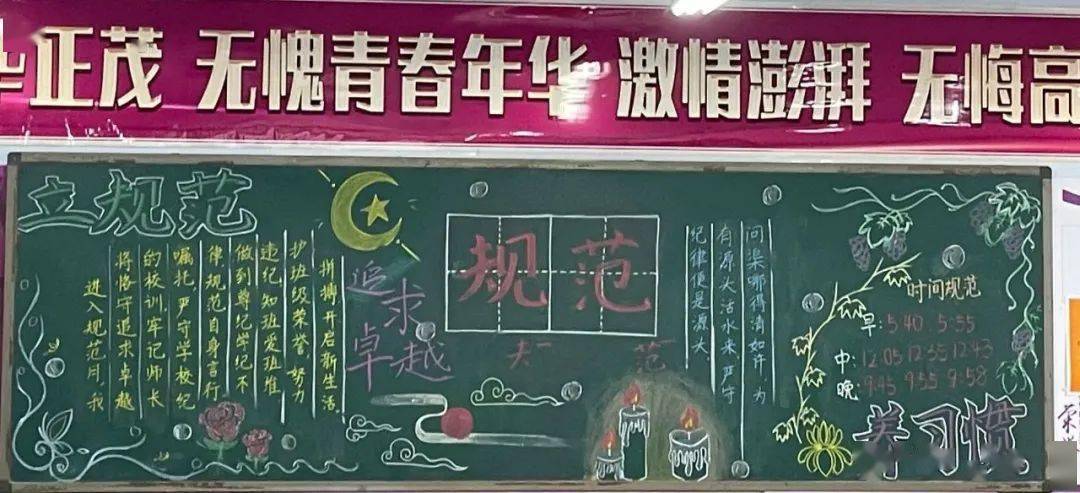 正茂 无愧青春年华 激情澎湃 无悔高
立规范
进入规范月,我
将恪守追求卓越
的校训牢记师长
嘱托严守学校纪
律规范自身言行
做到尊纪学纪不
违纪知班爱班维
护班级荣誉,努力
拼搏开启新生活。
追求
卓越
规范
范
问渠哪得清如许,为
有源头活水来,严守
纪律便是源头
时间规范
早:5:40 5:55
中:12:05 12:35 12:43
晚 9:45 9:55 9:58
养习惯